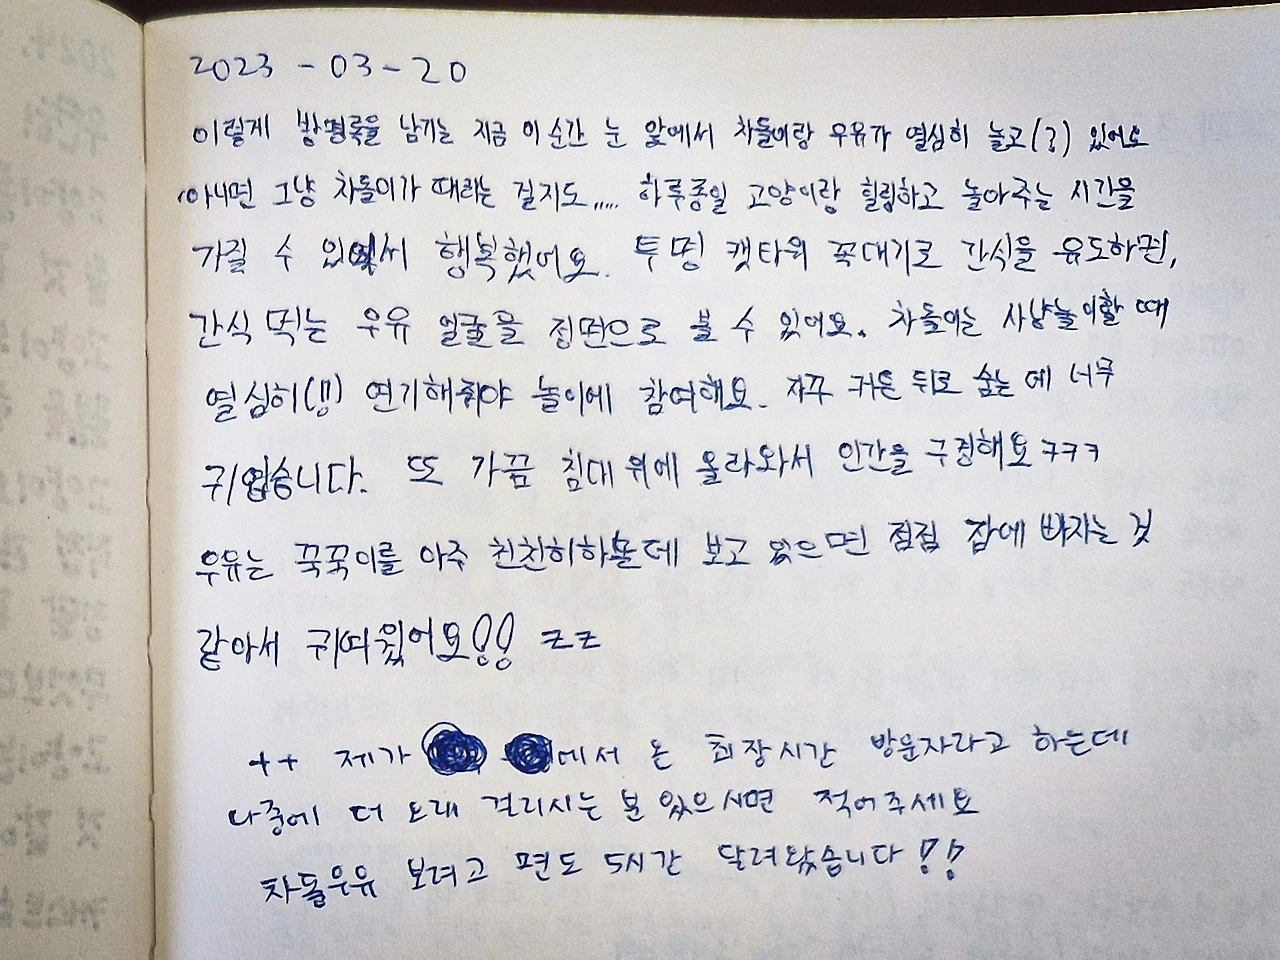 2023-03-20
이렇게 방명록을 남기는 지금 이 순간 눈 앞에서 차돌이랑 우유가 열심히 놀고(?) 있어요
아니면 그냥 차돌이가 때리는 걸지도..... 하루종일 고양이랑 힐링하고 놀아주는 시간을
가질 수 있어서 행복했어요. 투명 캣타워 꼭대기로 간식을 유도하면,
간식 먹는 우유 얼굴을 정면으로 볼 수 있어요. 차돌이는 사냥놀이할 때
열심히(!!) 연기해줘야 놀이에 참여해요. 자꾸 커튼 뒤로 숨는 데 너무
귀엽습니다. 또 가끔 침대 위에 올라와서 인간을 구경해요 ㅋㅋㅋ
우유는 꾹꾹이를 아주 천천히하는데 보고 있으면 점점 잠에 빠지는 것
같아서 귀여웠어요!! ㅋㅋ
++ 제가 에서 온 최장시간 방문자라고 하는데
나중에 더 오래 걸리시는 분 있으시면 적어주세요
차돌우유 보려고 편도 5시간 달려왔습니다!!